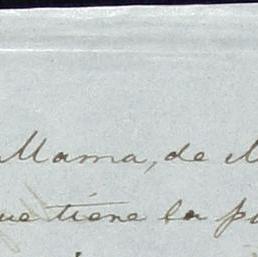 Mama, de
que tiene la